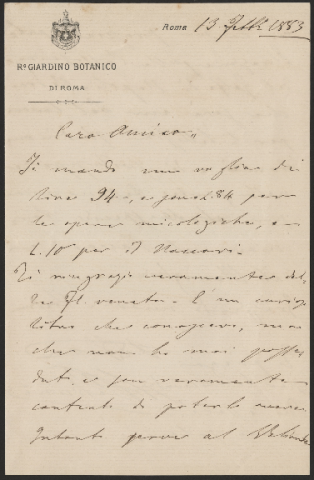 Roma 13 Febb 1883
Ro GIARDINO BOTANICO
DI ROMA
Caro Amico,
Ti mando un vaglia di
lire 94, e sono L. 84 per
le opere micologiche, e
L. 10 per il Saccardo.
Ti ringrazio veramente del
Fl. veneta. È un
che conoscevo, ma
che non ho mai posse
duto, e son veramente
contento di poterlo avere
Intanto penso al